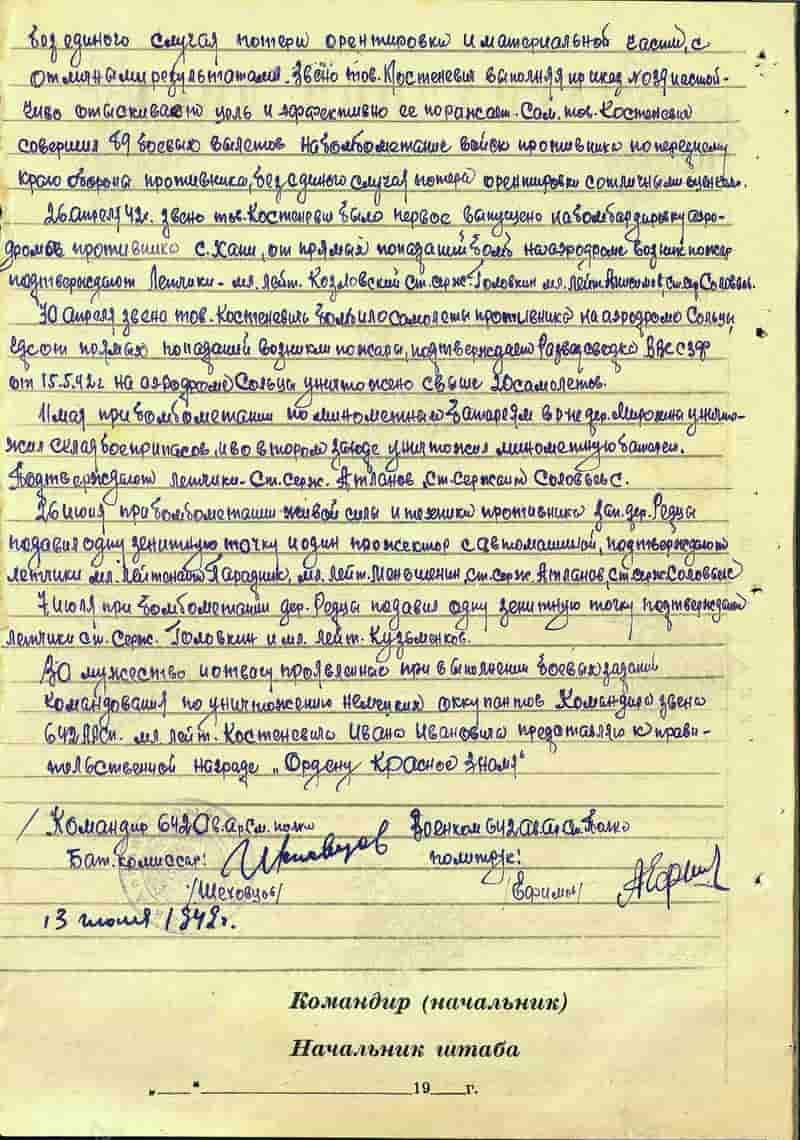 без единого случая потери орентировки и материальной части, с
отличными результатами. Звено тов. Костеневич выполняя приказ №0489 настой-
чиво отыскивает цель и эффективно ее поражает. Сам. тов. Костеневич
совершил 89 боевых вылетов на бомбометание войск противника по переднему
краю оборона противника, без единого случая потери орентировки с отличными оценками.
26 апреля 42г. звено тов. Костеневич было первое выпущено на бомбардировку аэро-
дромов противника с. Хани, от прямых попаданий бомб на аэродроме возник пожар
подтверждают Летчики - мл. лейт. Козловский Ст. серж. Головкин мл. лейт. Анисимов, ст. сер Соловьев.
30 апреля звено тов. Костеневич бомбило самолеты противника на аэродроме Сольцы,
где от прямых попаданий возникли пожары, подтверждает Разведсводка ВВС СЗФ
от 15.5.42г на аэродроме Сольцы уничтожено свыше 20 самолетов.
11 мая при бомбометании по минометным батареям в р-не дер. Мирохина уничто-
жил склад боеприпасов, и во втором заходе уничтожил минометную батарею.
Подтверждают летчики - Ст. Серж. Атланов, Ст. Сержант Соловьев С.
26 июня при бомбометании живой силы и техники противника зап. дер. Редцы
подавил одну зенитную точку и один прожектор с автомашиной, подтверждают
летчики мл. Лейтенант Парадник, мл. лейт. Меньшенин, ст. серж. Атланов, ст. серж Соловьев
7 июля при бомбометании дер. Редцы подавил одну зенитную точку подтверждают
летчики ст. Серж. Головкин и мл. лейт. Кузьменков.
За мужество и отвагу проявленные при выполнении боевых заданий
командования по уничтожению немецких оккупантов Командира звена
642 мл. лейт. Костеневича Ивана Ивановича представляю к прави-
тельственной награде „Ордену Красное Знамя“
Командир 642 Ав. Ар См. полка Военком 642 Ав. Ар См. Полка
Бат. комиссар: политрук:
/Шеховцов/ /Ефимов/
13 июля 1942г.
Командир (начальник)
Начальник штаба
„___“ ____________ 19___г.